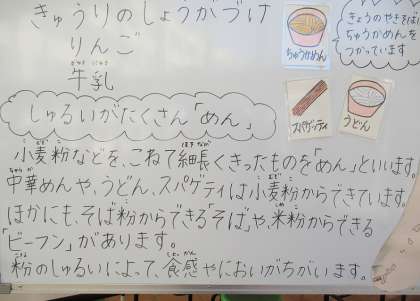 きゅうりのしょうがづけ
りんご
牛乳
ぎゅうにゅう
ちゅうかめん
きょうのやきそば
ちゅうかめんを
つかっています
スパゲティ
うどん
しゅるいがたくさん「めん」
小麦粉などを、こねて細長くきったものを「めん」といいます。
中華めんや、うどん、スパゲティは、小麦粉からできています。
ほかにも、そば粉からできる「そば」や、米粉からできる
「ビーフン」があります。
粉のしゅるいによって、食感やにおいがちがいます。